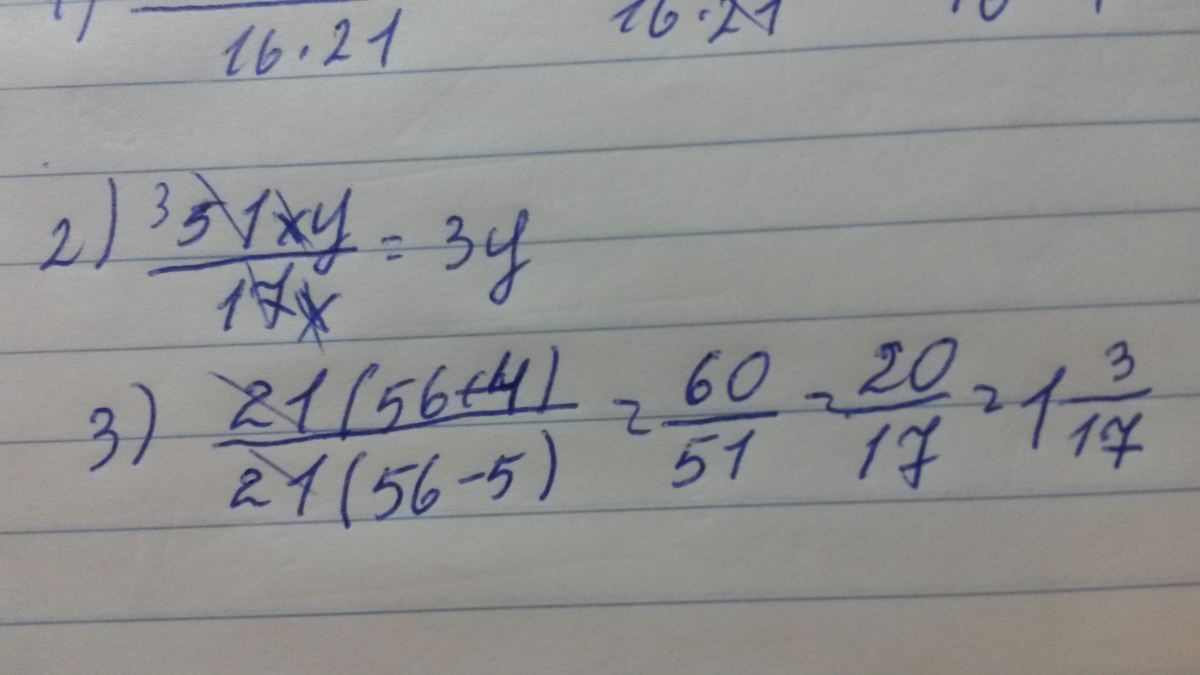 16·21 16·21
2) ³51xy/17x = 3y
3) 21(56+4)/21(56-5) = 60/51 = 20/17 = 1 3/17